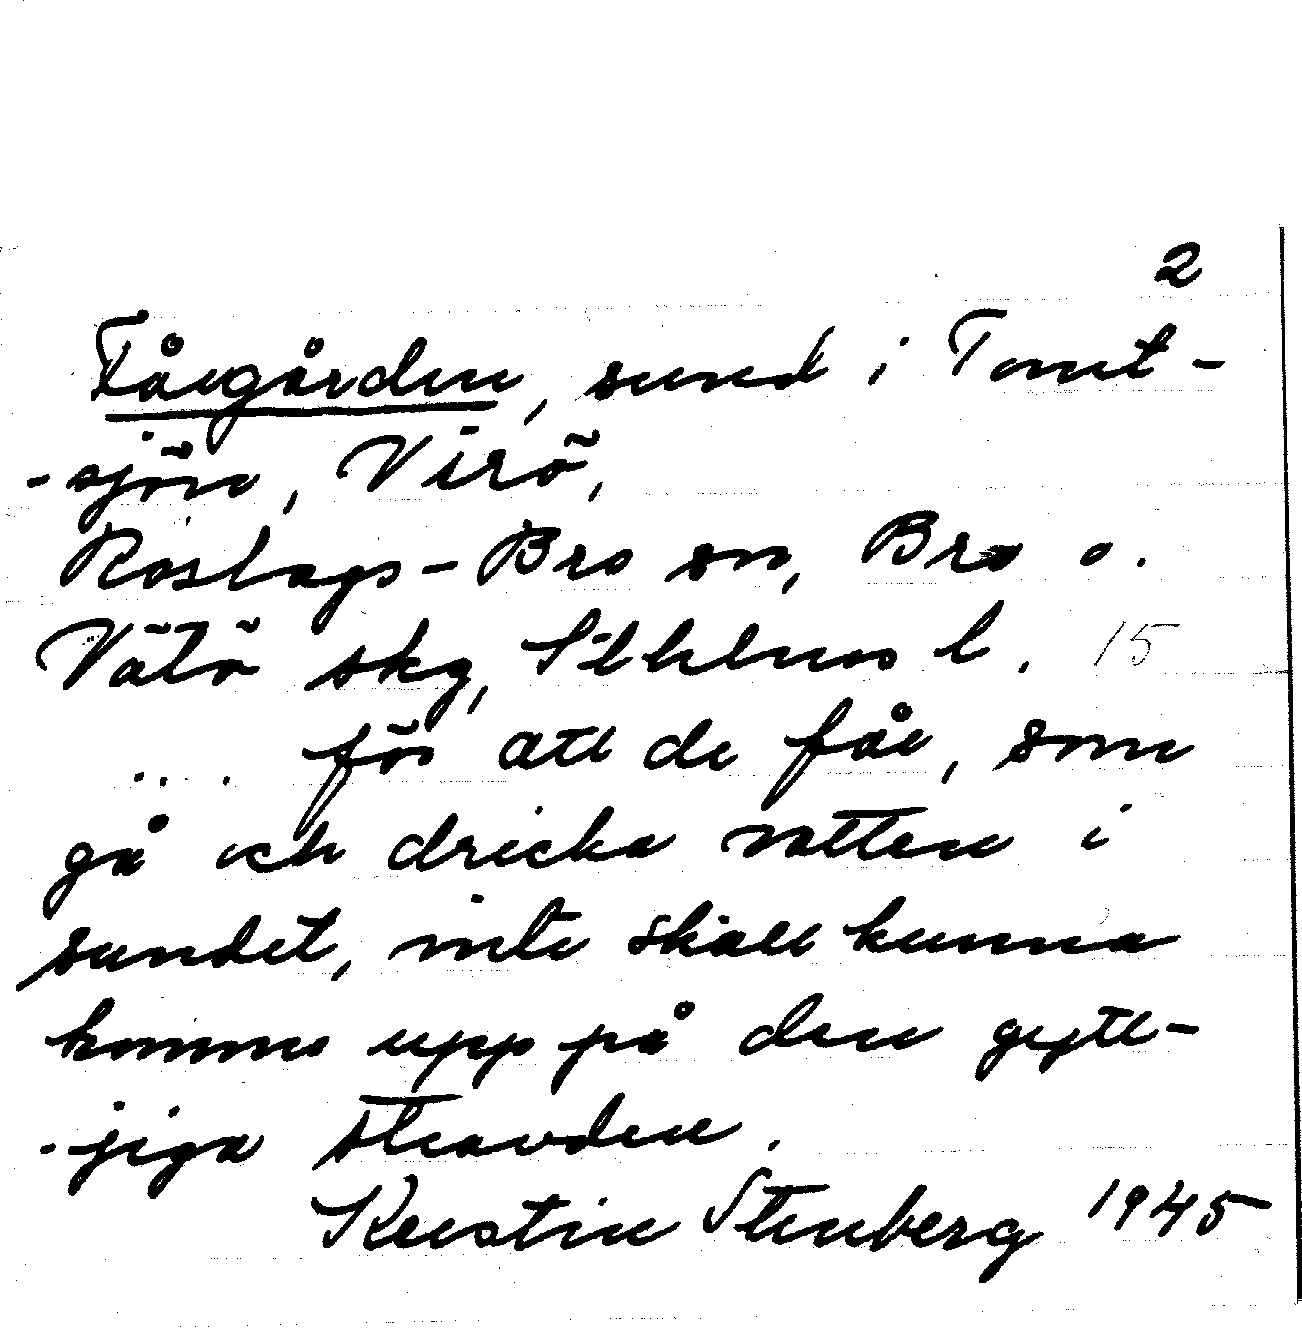 2
Fårgården, sund i Tomt-
-sjön, Virö,
Roslags-Bro sn, Bro o.
Vätö skg, Sthlms l. 15
.... för att de får, som
gå och dricka vatten i
sundet, inte skall kunna
komma upp på den gytt-
-jiga stranden.
Kerstin Stenberg 1945